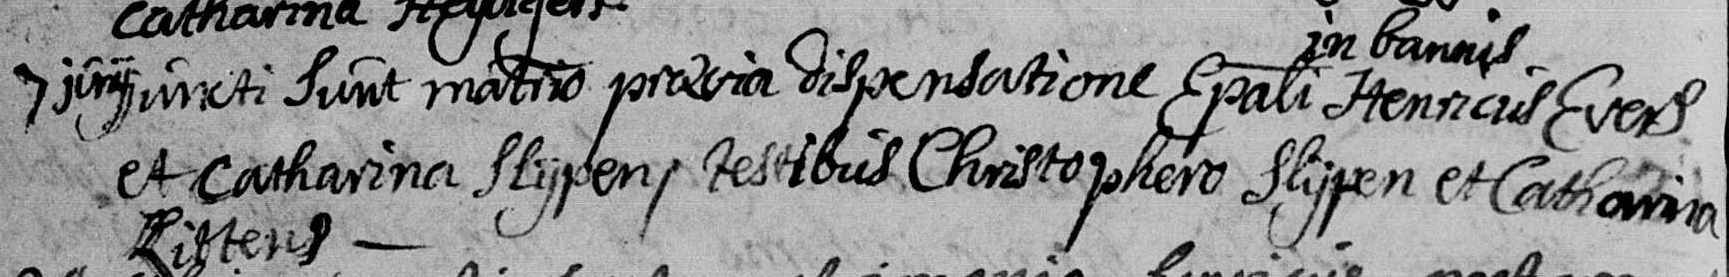 Catharina
in bannis
7 junij juncti sunt matrio prævia dispensatione Epali Henricus Evers
et Catharina Slijpen, testibus Christophero Slijpen et Catharina
Rittens —